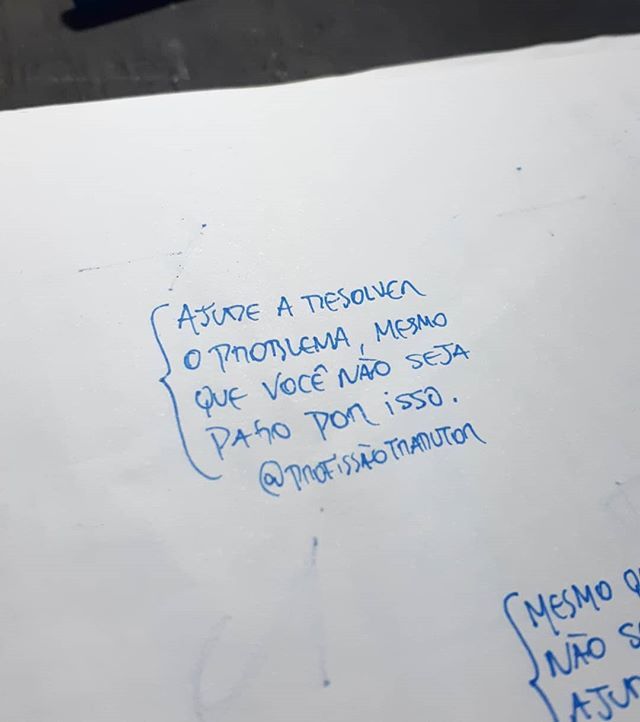 AJUDE A RESOLVER
O PROBLEMA, MESMO
QUE VOCÊ NÃO SEJA
PAGO POR ISSO.
@PROFISSÃOTRADUTOR
MESMO
NÃO